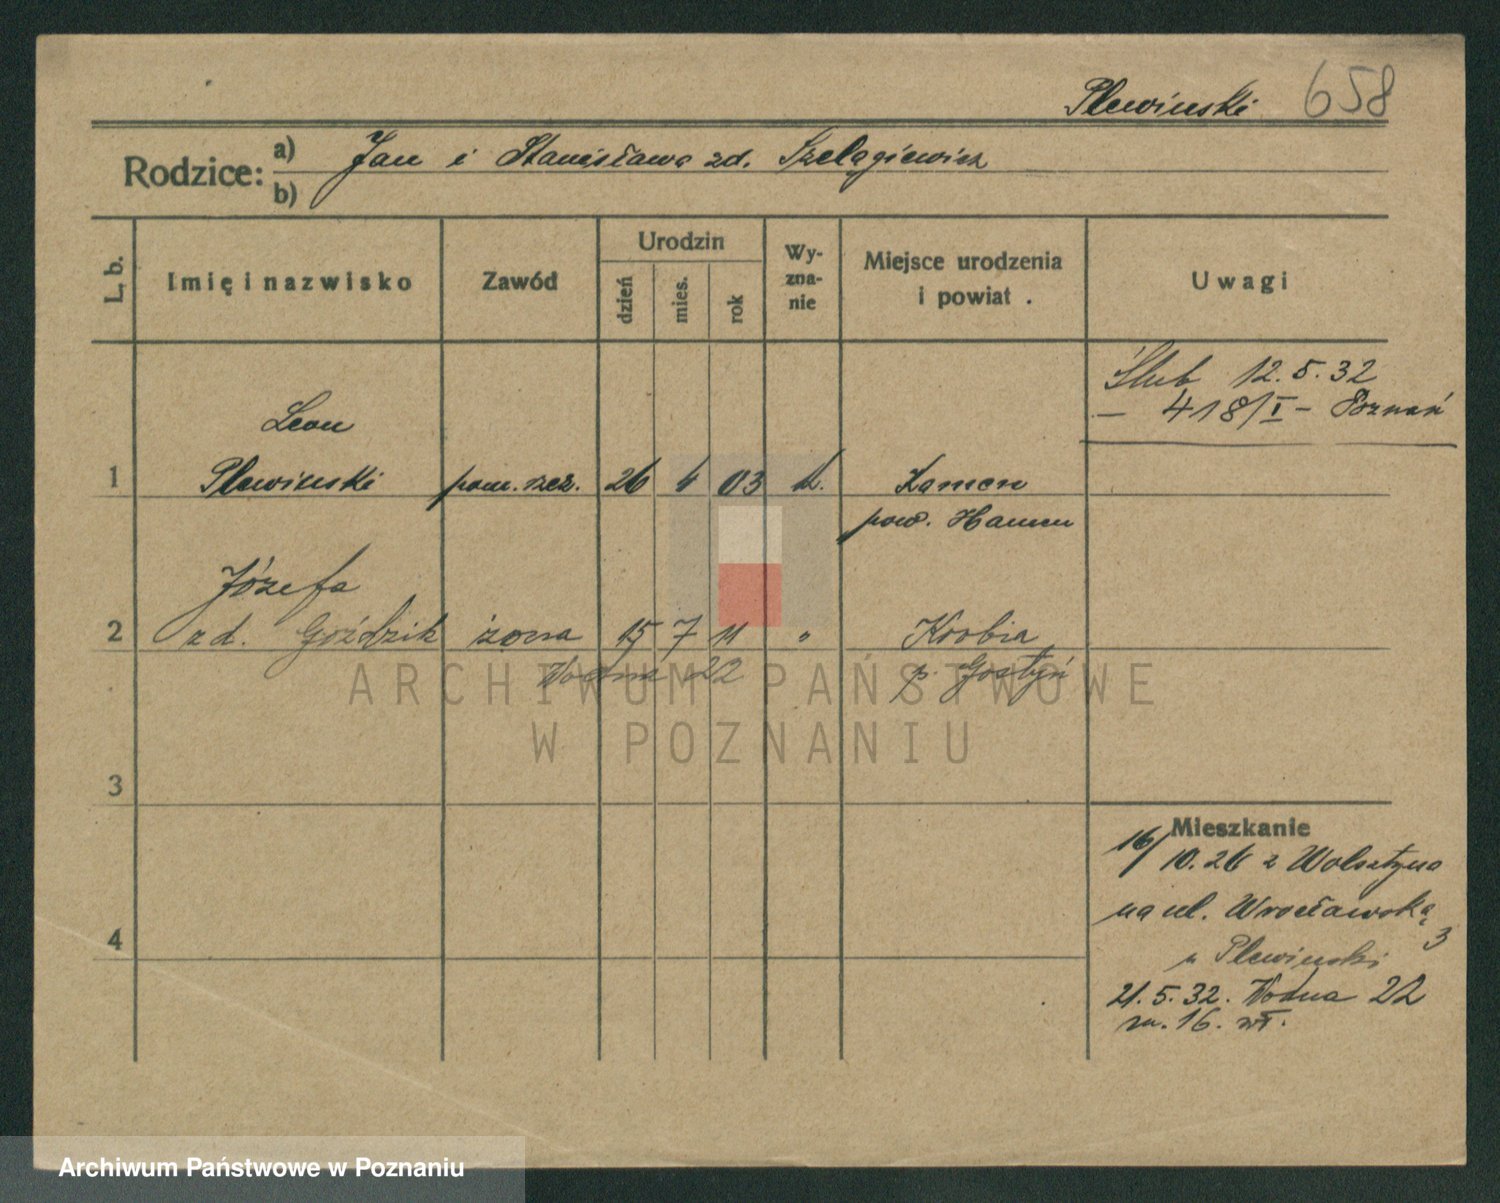 Plewinski 658
Rodzice: a) Jan i Stanisława zd. Szelągiewicz
b)
L. b. Imię i nazwisko Zawód Urodzin dzień mies. rok Wy-zna-nie Miejsce urodzenia i powiat . Uwagi
Ślub 12.5.32
– 418/I – Poznań
Leon
1 Plewinski pom. rzeź. 26 4 03 k. Kamen
pow. Hamm
Józefa
2 zd. Goździk żona 15 7 11 " Krobia
Wodna 22 p. Gostyń
ARCHIWUM PAŃSTWOWE
W POZNANIU
3
Mieszkanie
16/10.26 z Wolsztyna
na ul. Wrocławską 3
4
u Plewinski
21.5.32. Wodna 22
m. 16. wł.
Archiwum Państwowe w Poznaniu